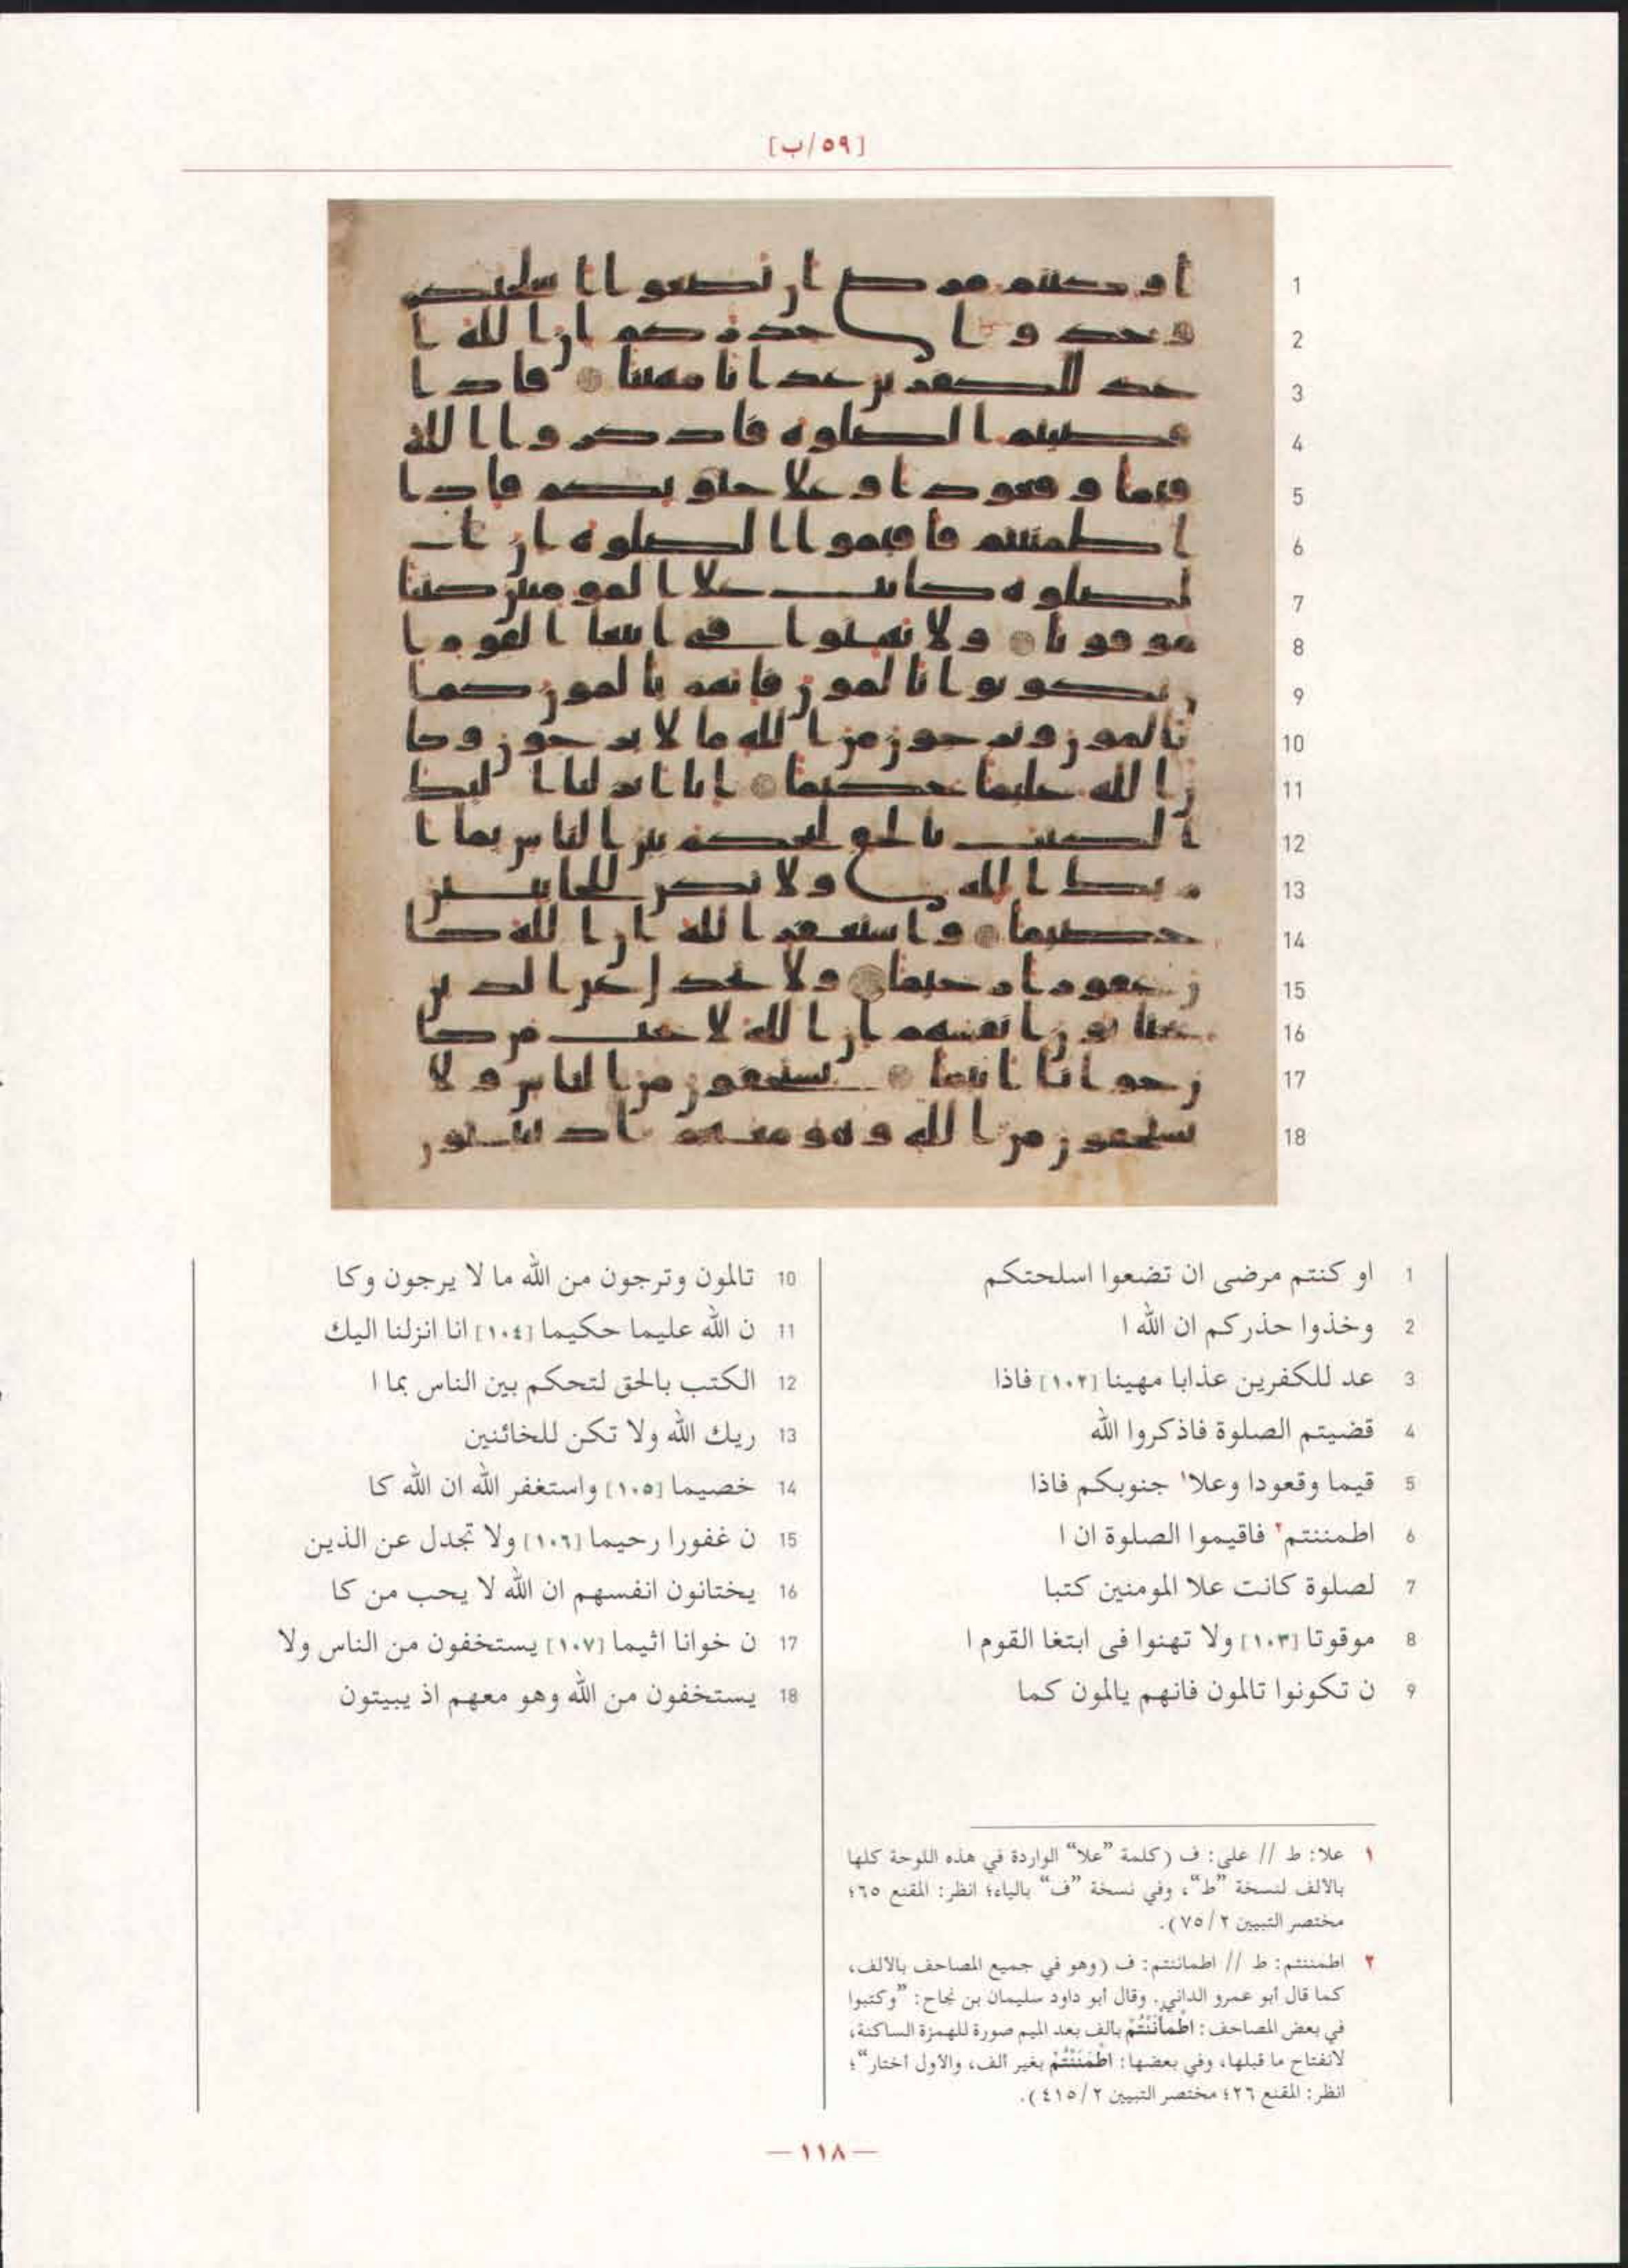 [٥٩/ب]
1 او كنتم مرضى ان تضعوا اسلحتكم
2 وخذوا حذركم ان الله ا
3 عد للكفرين عذابا مهينا [١٠٢] فاذا
4 قضيتم الصلوة فاذكروا الله
5 قيما وقعودا وعلا١ جنوبكم فاذا
6 اطمننتم٢ فاقيموا الصلوة ان ا
7 لصلوة كانت علا المومنين كتبا
8 موقوتا [١٠٣] ولا تهنوا فى ابتغا القوم ا
9 ن تكونوا تالمون فانهم يالمون كما
10 تالمون وترجون من الله ما لا يرجون وكا
11 ن الله عليما حكيما [١٠٤] انا انزلنا اليك
12 الكتب بالحق لتحكم بين الناس بما ا
13 ريك الله ولا تكن للخائنين
14 خصيما [١٠٥] واستغفر الله ان الله كا
15 ن غفورا رحيما [١٠٦] ولا تجدل عن الذين
16 يختانون انفسهم ان الله لا يحب من كا
17 ن خوانا اثيما [١٠٧] يستخفون من الناس ولا
18 يستخفون من الله وهو معهم اذ يبيتون
١ علا: ط // على: ف (كلمة ”علا“ الواردة في هذه اللوحة كلها
بالالف لنسخة ”ط“، وفي نسخة ”ف“ بالياء؛ انظر: المقنع ٦٥؛
مختصر التبيين ٧٥/٢).
٢ اطمننتم: ط // اطماننتم: ف (وهو في جميع المصاحف بالالف،
كما قال أبو عمرو الداني. وقال أبو داود سليمان بن نجاح: ”وكتبوا
في بعض المصاحف: اطْمَأْنَنْتُمْ بالف بعد الميم صورة للهمزة الساكنة،
لانفتاح ما قبلها، وفي بعضها: اطْمَنَنْتُمْ بغير ألف، والأول أختار“؛
انظر: المقنع ٢٦؛ مختصر التبيين ٤١٥/٢).
— ١١٨ —